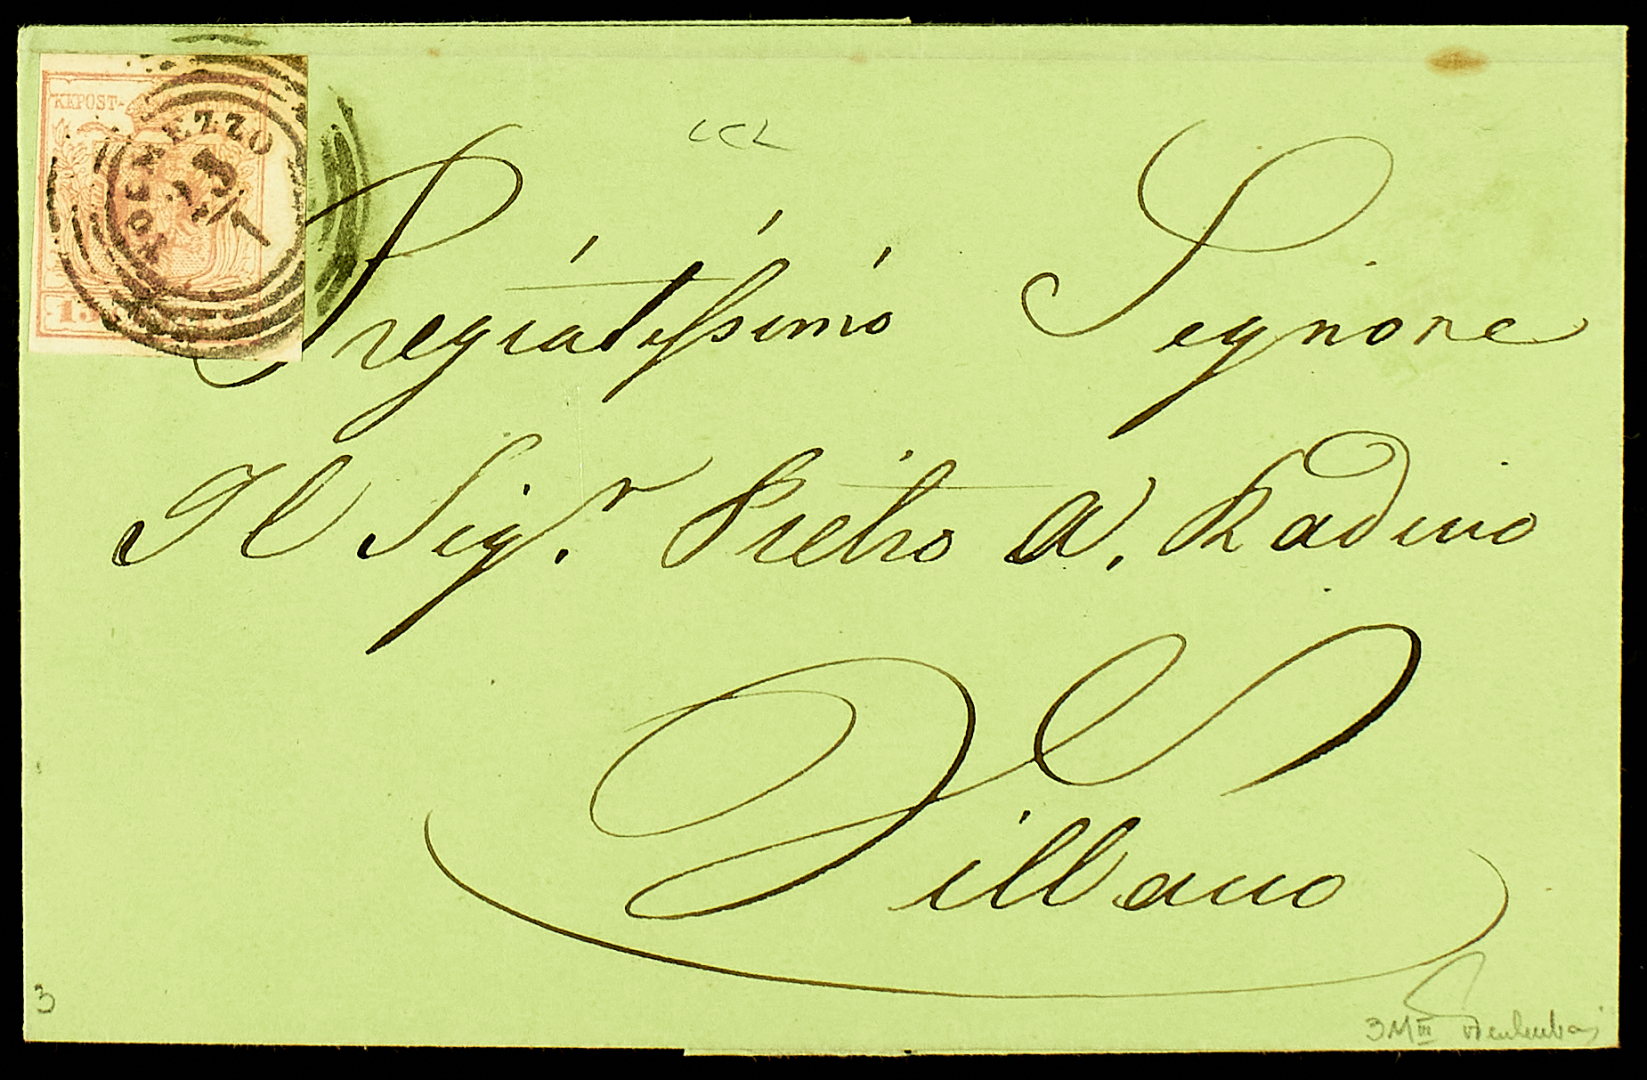 KKPOST-
NOCMEZZO
23
/1
15
Pregiatissimo Signore
Il Sig.r Pietro A. Radino
Villano
3
3MIII